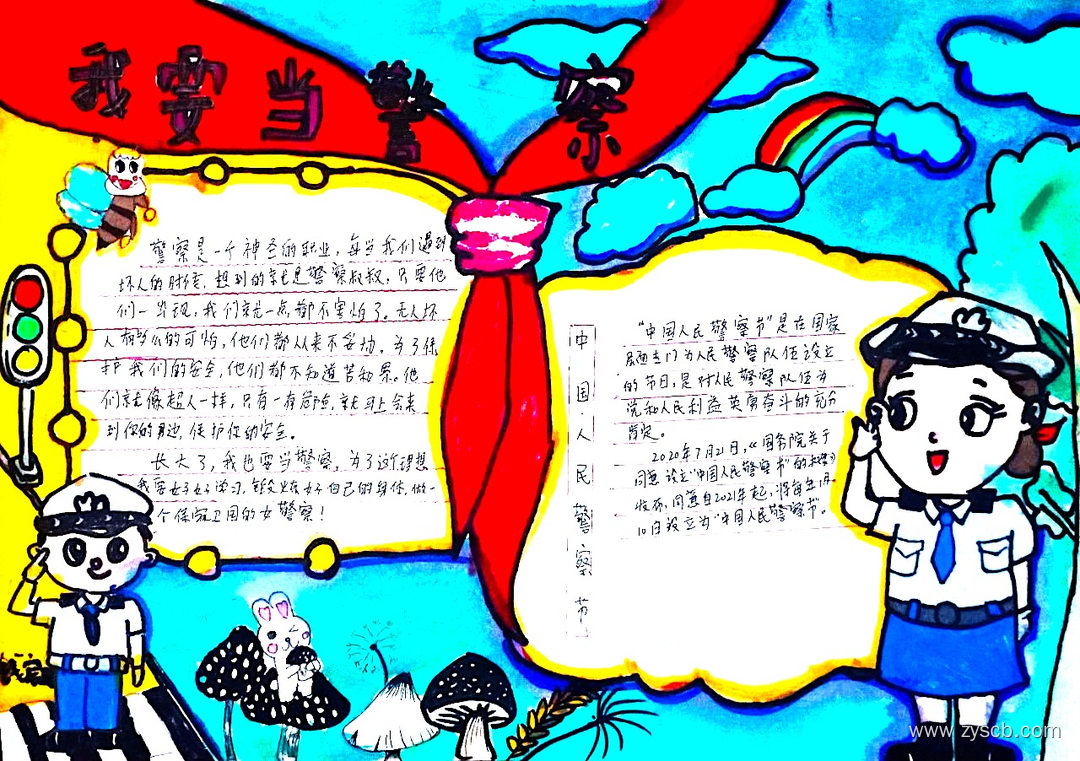 我要当警察
警察是一个神圣的职业，每当我们遇到
坏人的时候，想到的就是警察叔叔，只要他
们一出现，我们就一点都不害怕了。无论坏
人有多么的可怕，他们都从来不妥协。为了保
护我们的安全，他们都不知道苦和累。他
们就像超人一样，只有一有危险，就马上会来
到你的身边，保护你的安全。
长大了，我也要当警察，为了这个理想
我要好好学习，锻炼好自己的身体，做一
个保家卫国的女警察！
中国人民警察节
“中国人民警察节”是在国家
层面专门为人民警察队伍设立
的节日，是对人民警察队伍为
党和人民利益英勇奋斗的充分
肯定。
2020年7月21日，《国务院关于
同意设立“中国人民警察节”的批复》
发布，同意自2021年起，将每年1月
10日设立为“中国人民警察节”。
www.zyscb.com